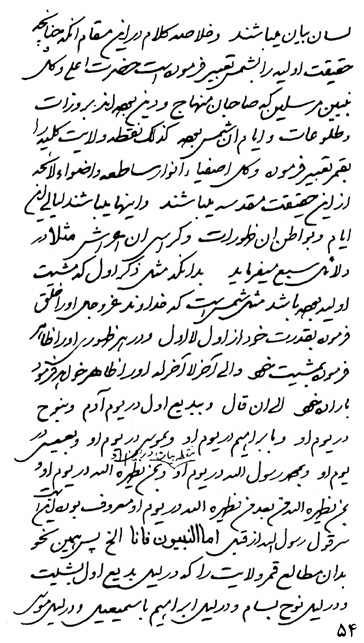 لسان بیان میباشند و خلاصه کلام در این مقام آنکه چنانچه
حقیقت اولیه را شمس تعبیر فرموده است حضرت اعلی و کل
نبیین مرسلین که صاحبان منهاج و دین بوده اند بروزات
و طلوعات و ایام آن شمس بوده کذلک نقطه ولایت کلیه را
بقمر تعبیر فرموده و کل اصفیا را انوار ساطعه و اضواء لائحه
از این حقیقت مقدسه میباشند و اینها میباشند لیالی این
ایام و بواطن آن ظهورات و کرسی آن عرش مثلا در
دلائل سبع میفرماید بدانکه مثل ذکر اول که مشیت
اولیه بوده باشد مثل شمس است که خداوند عز و جل او را خلق
فرموده بقدرت خود از اول لا اول و در هر ظهوری او را ظاهر
فرموده بمشیت خود و الی آخر لا آخر له او را ظاهر خواهد فرمود
باراده خود الی ان قال و ببدیع اول در یوم آدم و بنوح
در یوم او و بابراهیم در یوم او و بموسی در یوم او و بعیسی در
یوم او و بمحمد رسول الله در یوم او و بمن یظهره الله در یوم او و
بمن یظهره الله من بعد من یظهره الله در یوم او معروف بوده اینست
سر قول رسول الله از قبل اما النبیون فانا الخ پس همین نحو
بدان مطالع قمر ولایت را که در لیل بدیع اول بشیث
و در لیل نوح بسام و در لیل ابراهیم باسمعیل و در لیل موسی
۵۴